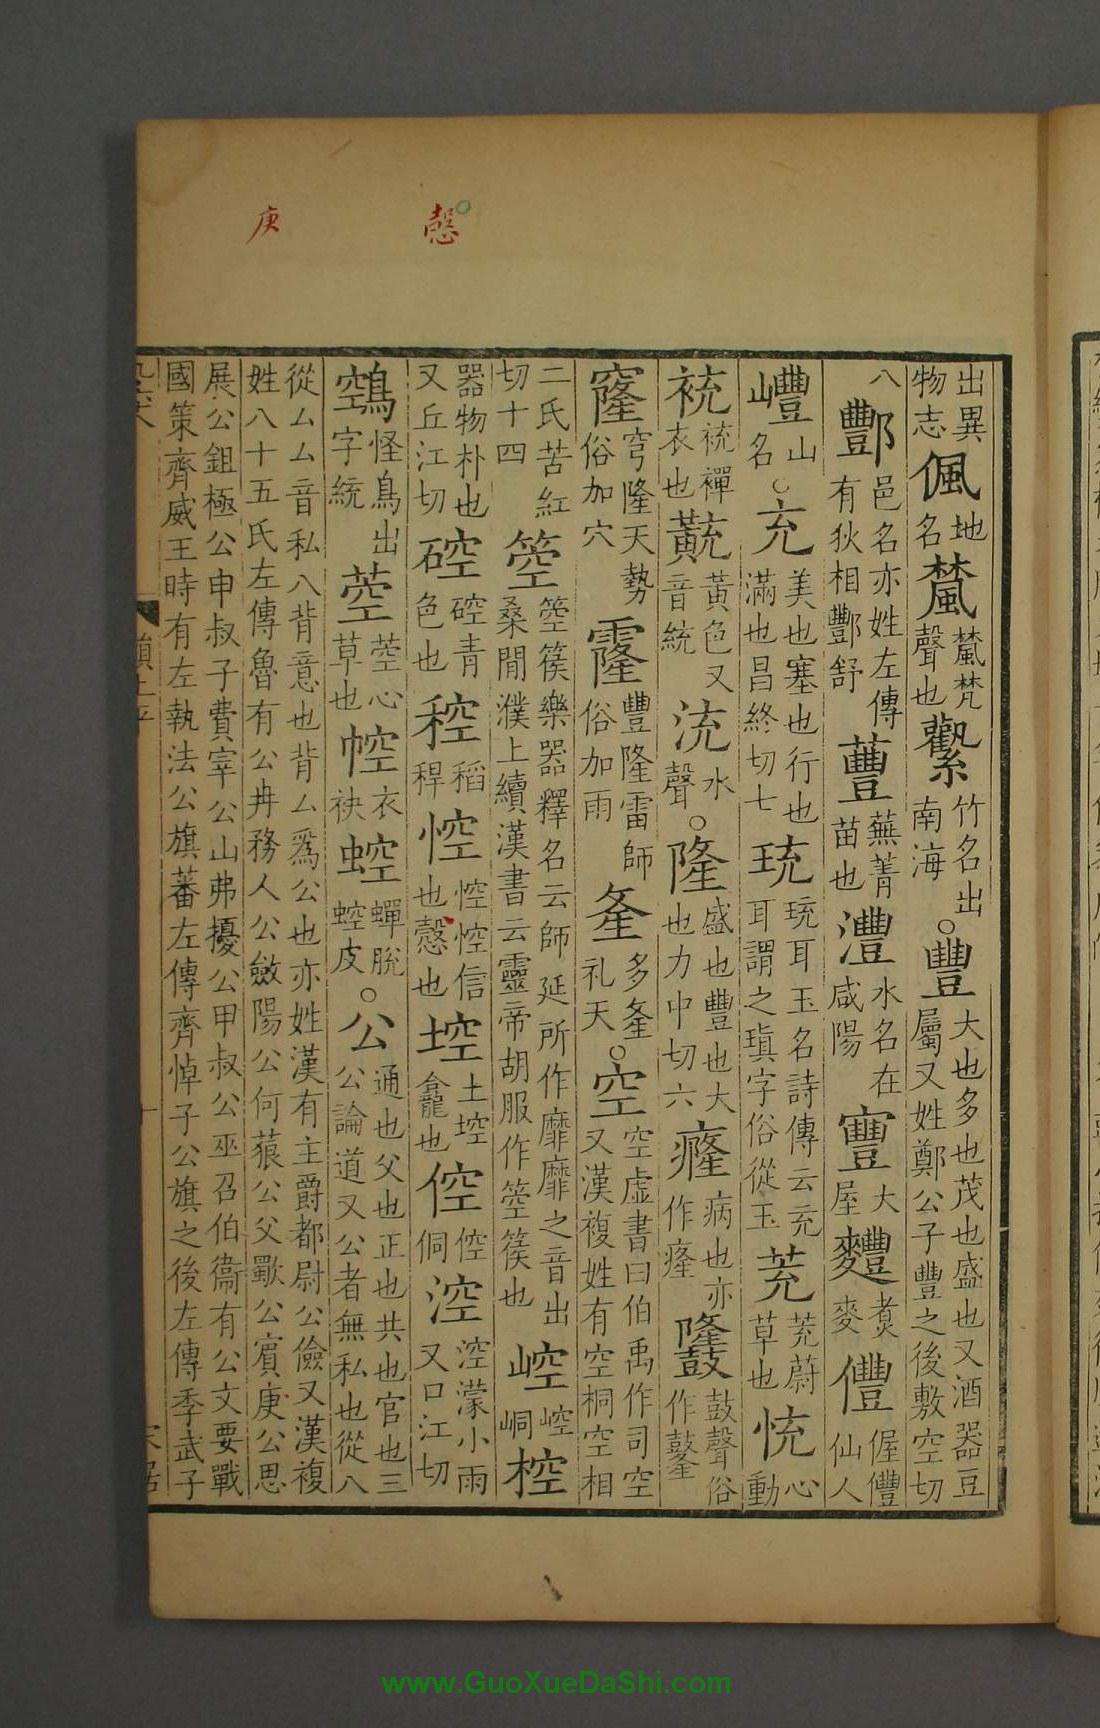 慤 庚
出異物志偑地名檒檒梵聲也䉵竹名出南海○豐大也多也茂也盛也又酒器豆屬又姓鄭公子豐之後敷空切
八酆邑名亦姓左傳有狄相酆舒蘴蕪菁苗也灃水名在咸陽寷大屋麷煑麥僼偓僼仙人
㠦山名○充美也塞也行也滿也昌終切七珫珫耳玉名詩傳云充耳謂之瑱字俗從玉茺茺蔚草也㤝心動
䘪䘪襌衣也黋黃色又音統㳘水聲○隆盛也豐也大也力中切六癃病也亦作㾖鼓聲俗作
窿穹隆天勢俗加穴霳豐隆雷師俗加雨夅多夅礼天○空空虛書曰伯禹作司空又漢複姓有空桐空相
二氏苦紅切十四箜箜篌樂器釋名云師延所作靡靡之音出桑閒濮上續漢書云靈帝胡服作箜篌也崆崆峒椌
器物朴也又丘江切硿硿青色也䅝稻稈悾悾悾信也愨也埪土埪龕也倥倥侗涳涳濛小雨又口江切
鵼怪鳥出字統䓚䓚心草也𢃐衣袂䗔蟬脫䗔皮○公通也父也正也共也官也三公論道又公者無私也從八
從厶厶音私八背意也背厶爲公也亦姓漢有主爵都尉公儉又漢複姓八十五氏左傳魯有公冉務人公斂陽公何藐公父歜公賓庚公思
展公鉏極公申叔子費宰公山弗擾公甲叔公巫召伯衞有公文要戰國策齊威王時有左執法公旗蕃左傳齊悼子公旗之後左傳季武子
www.GuoXueDaShi.com